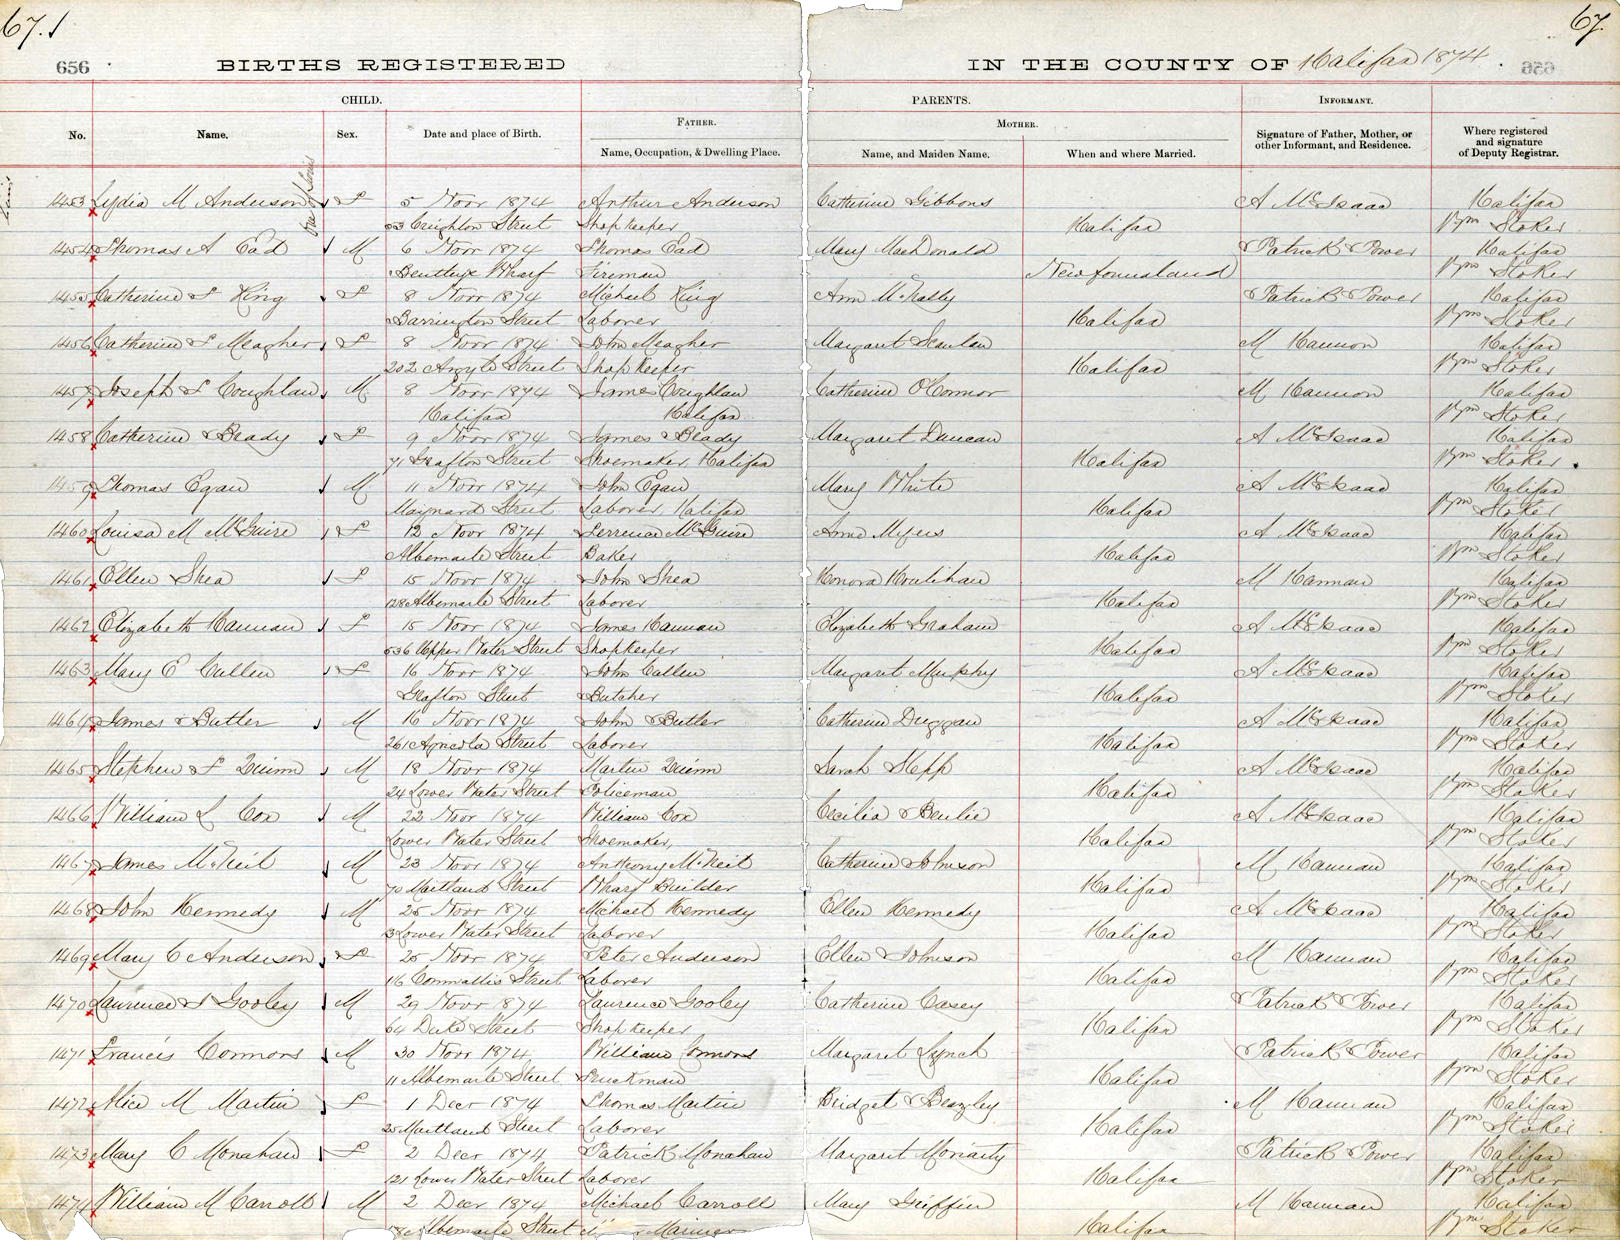 67.1
67.
656 BIRTHS REGISTERED IN THE COUNTY OF Halifax 1874. 656
CHILD. PARENTS. INFORMANT.
No. Name. Sex. Date and place of Birth. FATHER. MOTHER. Signature of Father, Mother, or other Informant, and Residence. Where registered and signature of Deputy Registrar.
Name, Occupation, & Dwelling Place. Name, and Maiden Name. When and where Married.
One of Twins
1453 Lydia M Anderson F 5 Novr 1874 Arthur Anderson Catherine Gibbons A McIsaac Halifax
53 Creighton Street Shop Keeper Halifax Wm Stoker
1454 Thomas A Ead M 6 Novr 1874 Thomas Ead Mary MacDonald Patrick Power Halifax
Wharf Fireman Newfoundland Wm Stoker
1455 Catherine F King F 8 Novr 1874 Michael King Ann McNally Patrick Power Halifax
Barrington Street Laborer Halifax Wm Stoker
1456 Catherine F Meagher F 8 Novr 1874 John Meagher Margaret Scanlan M Hannan Halifax
202 Argyle Street Shop Keeper Halifax Wm Stoker
1457 Joseph F Coughlan M 8 Novr 1874 James Coughlan Catherine O'Connor M Hannan Halifax
Halifax Halifax Wm Stoker
1458 Catherine Brady F 9 Novr 1874 James Brady Margaret Duncan A McIsaac Halifax
71 Grafton Street Shoemaker, Halifax Halifax Wm Stoker
1459 Thomas Egan M 11 Novr 1874 John Egan Mary White A McIsaac Halifax
Maynard Street Laborer, Halifax Halifax Wm Stoker
1460 Louisa M McGuire F 12 Novr 1874 Terrence McGuire Anne Myers A McIsaac Halifax
Albemarle Street Baker Halifax Wm Stoker
1461 Ellen Shea F 15 Novr 1874 John Shea Honora Houlihan M Hannan Halifax
128 Albemarle Street Laborer Halifax Wm Stoker
1462 Elizabeth Hannan F 15 Novr 1874 James Hannan Elizabeth Graham A McIsaac Halifax
536 Upper Water Street Shopkeeper Halifax Wm Stoker
1463 Mary E Cullen F 16 Novr 1874 John Cullen Margaret Murphy A McIsaac Halifax
Grafton Street Butcher Halifax Wm Stoker
1464 James Butler M 16 Novr 1874 John Butler Catherine Duggan A McIsaac Halifax
261 Agricola Street Laborer Halifax Wm Stoker
1465 Stephen F Quinn M 18 Novr 1874 Martin Quinn Sarah Stepp A McIsaac Halifax
24 Lower Water Street Policeman Halifax Wm Stoker
1466 William L Cox M 22 Novr 1874 William Cox Cecilia A McIsaac Halifax
Lower Water Street Shoemaker, Halifax Wm Stoker
1467 James McNeil M 23 Novr 1874 Anthony McNeil Catherine Johnson M Hannan Halifax
70 Maitland Street Wharf Builder Halifax Wm Stoker
1468 John Kennedy M 25 Novr 1874 Michael Kennedy Ellen Kennedy A McIsaac Halifax
3 Lower Water Street Laborer Halifax Wm Stoker
1469 Mary C Anderson F 25 Novr 1874 Peter Anderson Ellen Johnson M Hannan Halifax
116 Cornwallis Street Laborer Halifax Wm Stoker
1470 Laurence J Gooley M 29 Novr 1874 Laurence Gooley Catherine Casey Patrick Power Halifax
64 Duke Street Shop Keeper Halifax Wm Stoker
1471 Francis Connors M 30 Novr 1874 William Connors Margaret Lynch Patrick Power Halifax
11 Albemarle Street Truckman Halifax Wm Stoker
1472 Alice M Martin F 1 Decr 1874 Thomas Martin Bridget Beazley M Hannan Halifax
25 Maitland Street Laborer Halifax Wm Stoker
1473 Mary C Monahan F 2 Decr 1874 Patrick Monahan Margaret Moriarty Patrick Power Halifax
121 Lower Water Street Laborer Halifax Wm Stoker
1474 William M Carroll M 2 Decr 1874 Michael Carroll Mary Griffin M Hannan Halifax
Albemarle Street Mariner Halifax Wm Stoker